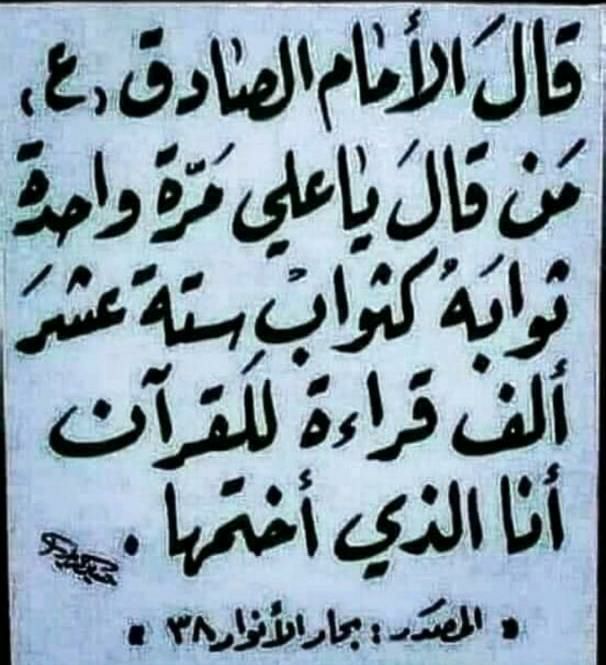 قالَ الأمام الصادق (ع)
مَن قالَ ياعلي مَرّة واحدة
ثوابَهُ كثوابْ ستة عشرَ
ألف قراءة للقرآن
أنا الذي أختمها .
« المصدر : بحار الأنوار ٣٨ »